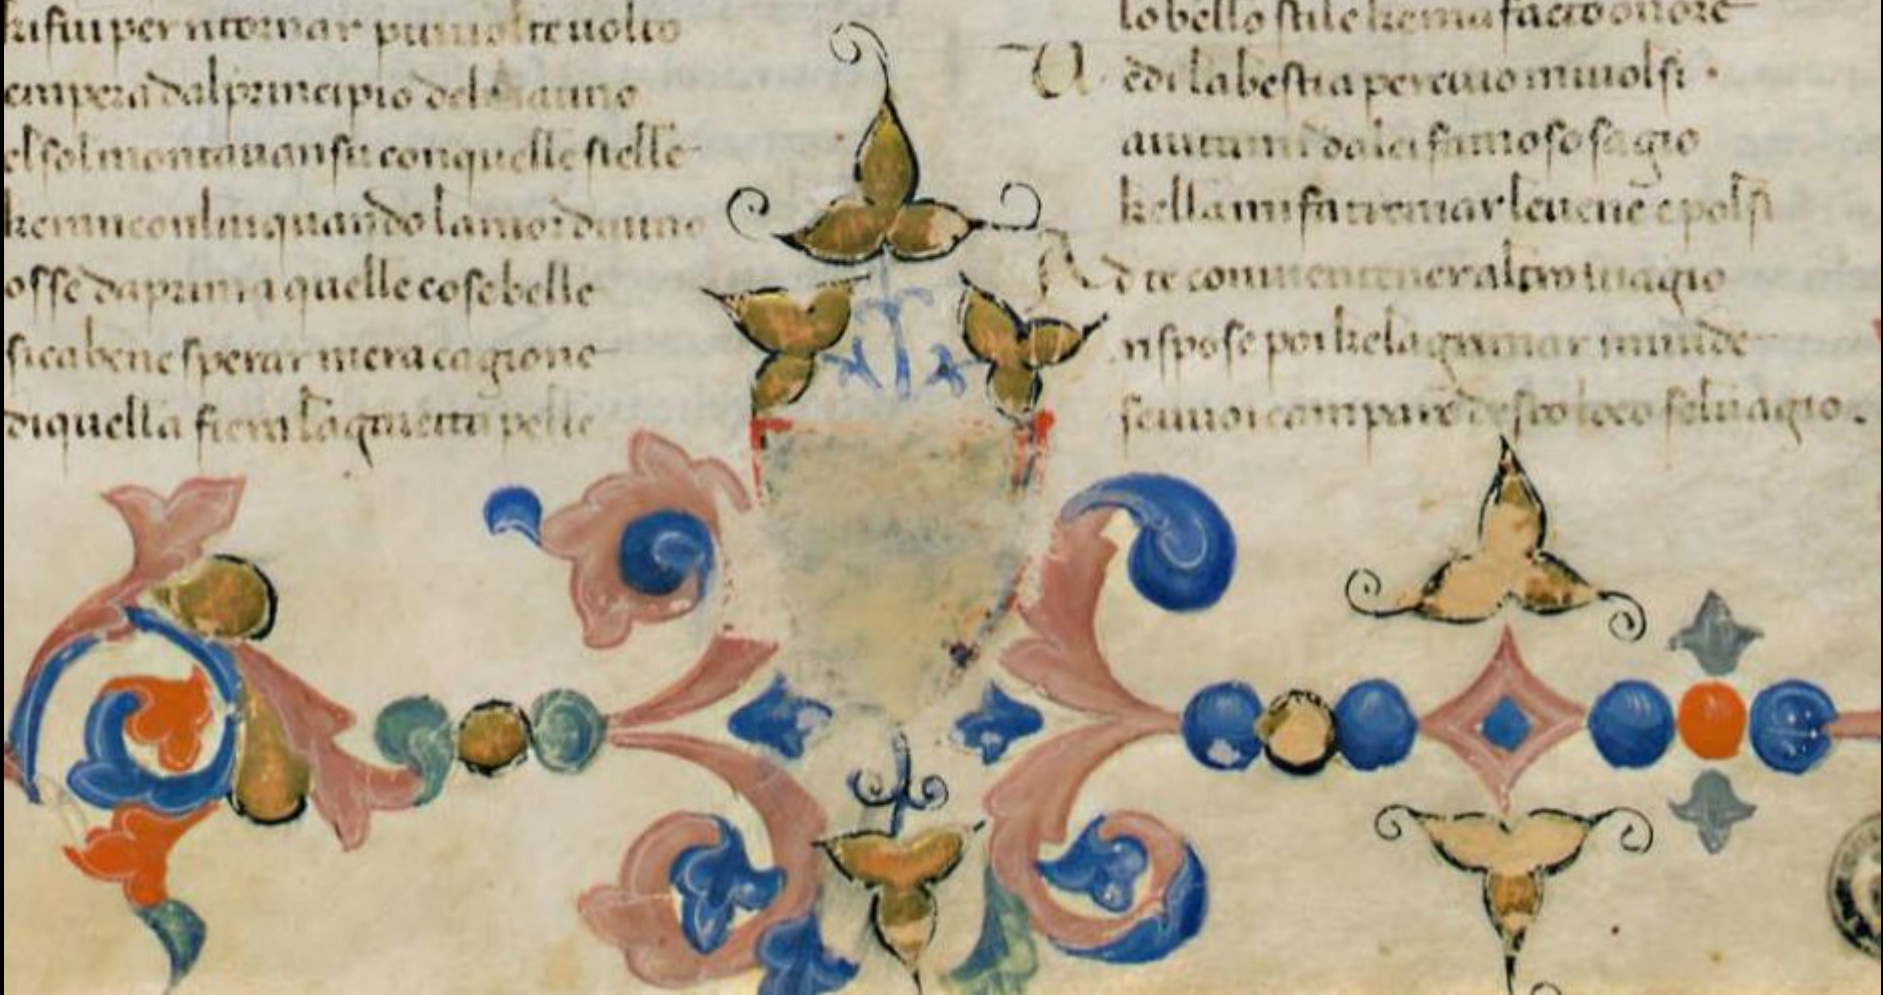 kifui per ritornar piu uolte uolto
empera dal principio del matino
elsol montauansu conquelle stelle
keran conlui quando lamor diuino
osse daprima quelle cose belle
sicabene sperar mera cagione
diquella fiera lagaietta pelle
lo bello stile kema facto onore
Uedi labestia percuio miuolsi ·
aiutami dalei famoso sagio
kellami fa tremar leuene e polsi
Ad te conuien tener altro uiagio
rispose poi kelagrimar miuide
seuuoi campare desto loco seluagio .